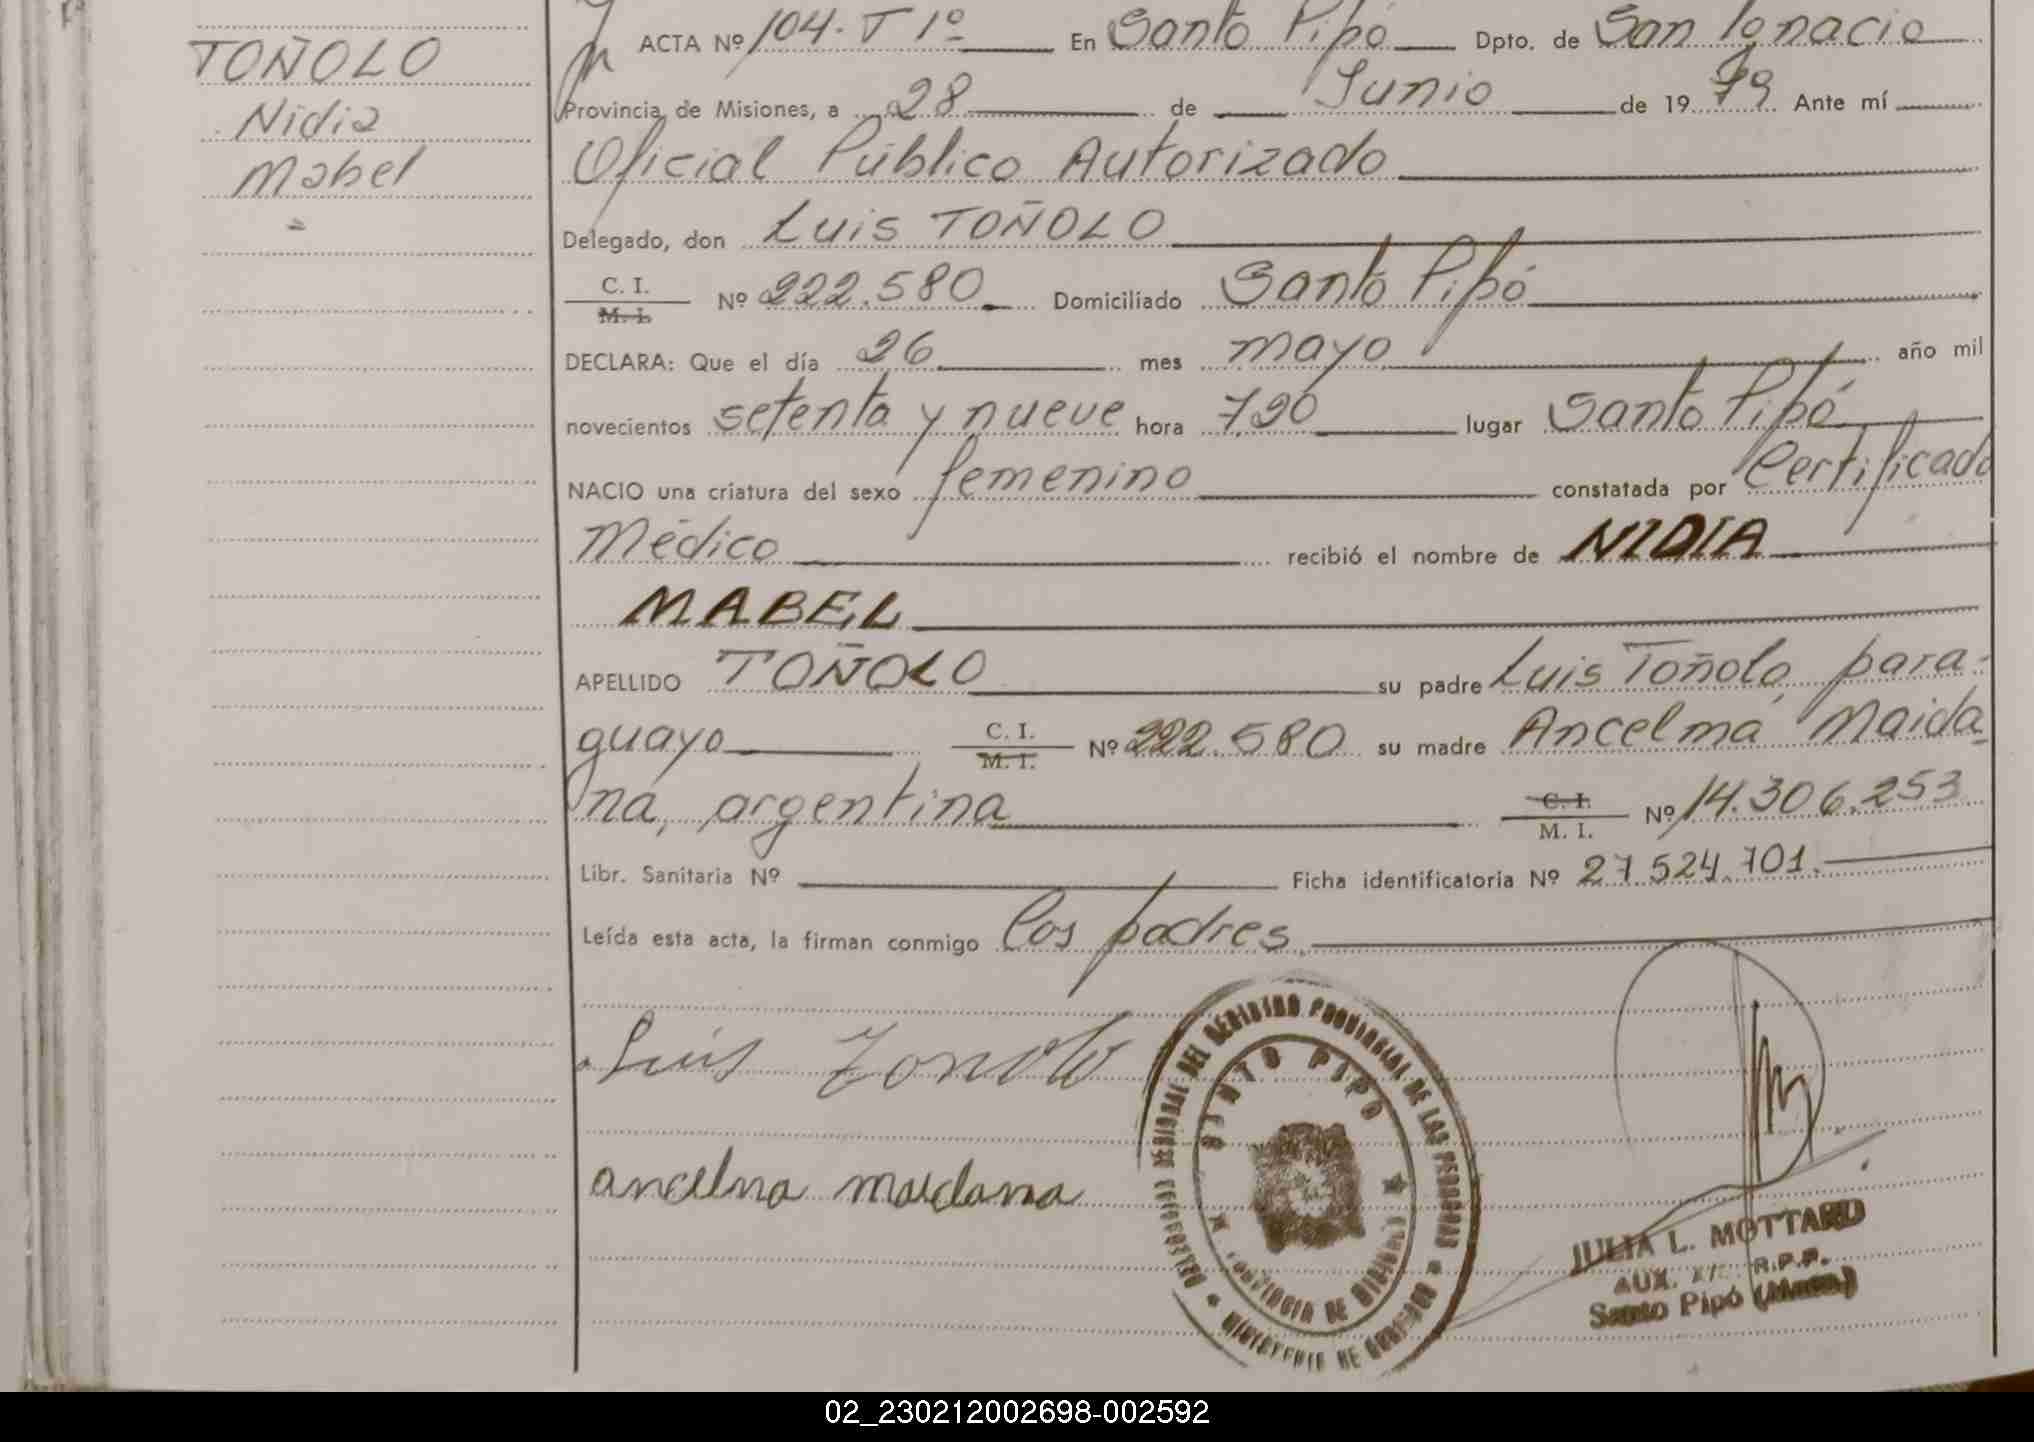 TOÑOLO
Nidia
Mabel
ACTA Nº 104. T 1º En Santo Pipó Dpto. de San Ignacio
Provincia de Misiones, a 28 de Junio de 1979 Ante mí
Oficial Público Autorizado
Delegado, don Luis TOÑOLO
C. I.
M. I. Nº 222.580 Domiciliado Santo Pipó
DECLARA: Que el día 26 mes mayo año mil
novecientos setenta y nueve hora 7,20 lugar Santo Pipó
NACIO una criatura del sexo femenino constatada por Certificado
Médico recibió el nombre de NIDIA
MABEL
APELLIDO TOÑOLO su padre Luis Toñolo, para-
guayo C. I. M. I. Nº 222.580 su madre Ancelma Maida-
na, argentina C. I. M. I. Nº 14.306.253
Libr. Sanitaria Nº Ficha identificatoria Nº 27.524.701.
Leída esta acta, la firman conmigo los padres.
Luis Tonolo
ancelma maidana
DELEGACION REGIONAL DEL REGISTRO PROVINCIAL DE LAS PERSONAS * MINISTERIO DE GOBIERNO *
SANTO PIPO
* PROVINCIA DE MISIONES *
JULIA L. MOTTARD
AUX. R.P.P.
Santo Pipó (Mnes.)
02_230212002698-002592